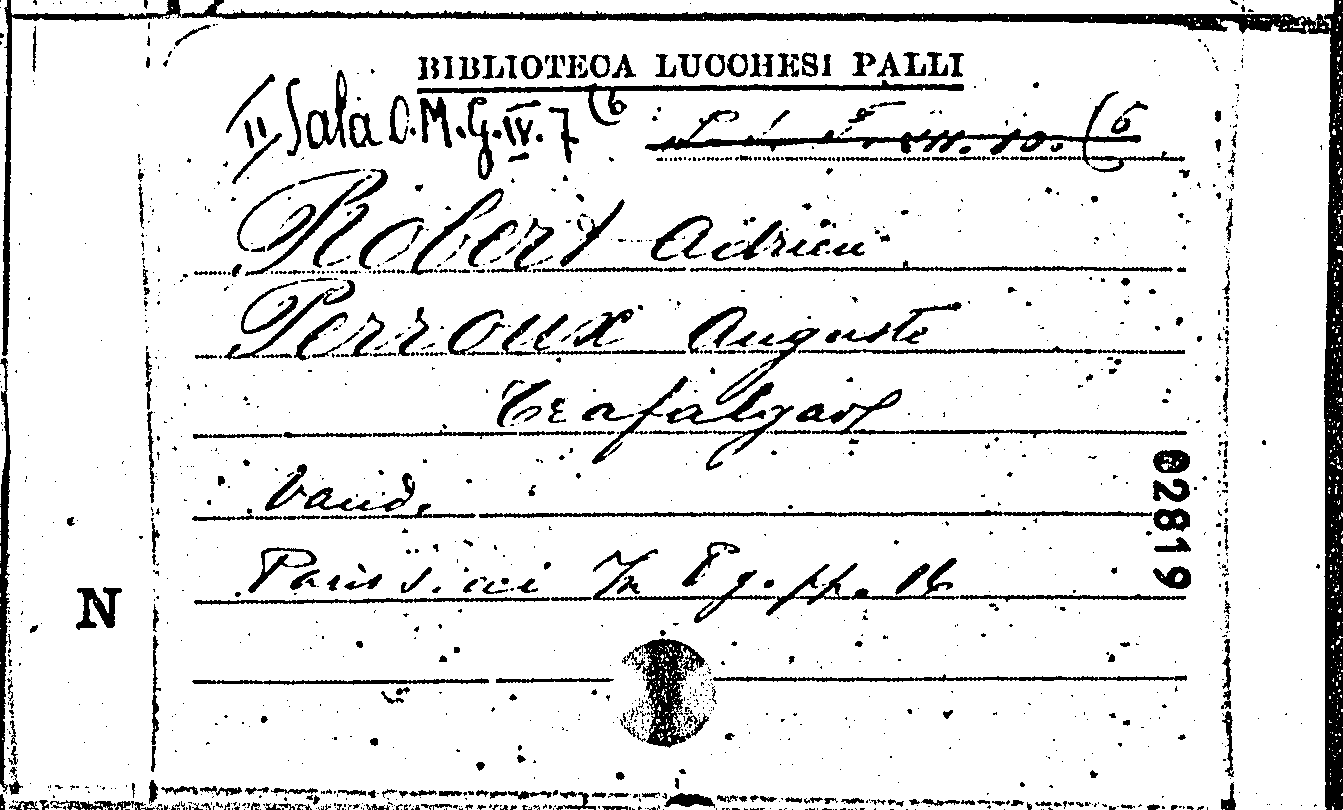 BIBLIOTECA LUCCHESI PALLI
II Sala O.M.G.IV.7 (6
Robert Adrien
Perroux Auguste
Trafalgar
Vaud.
Paris s. a. i In 8 g. pp. 16
N
02819